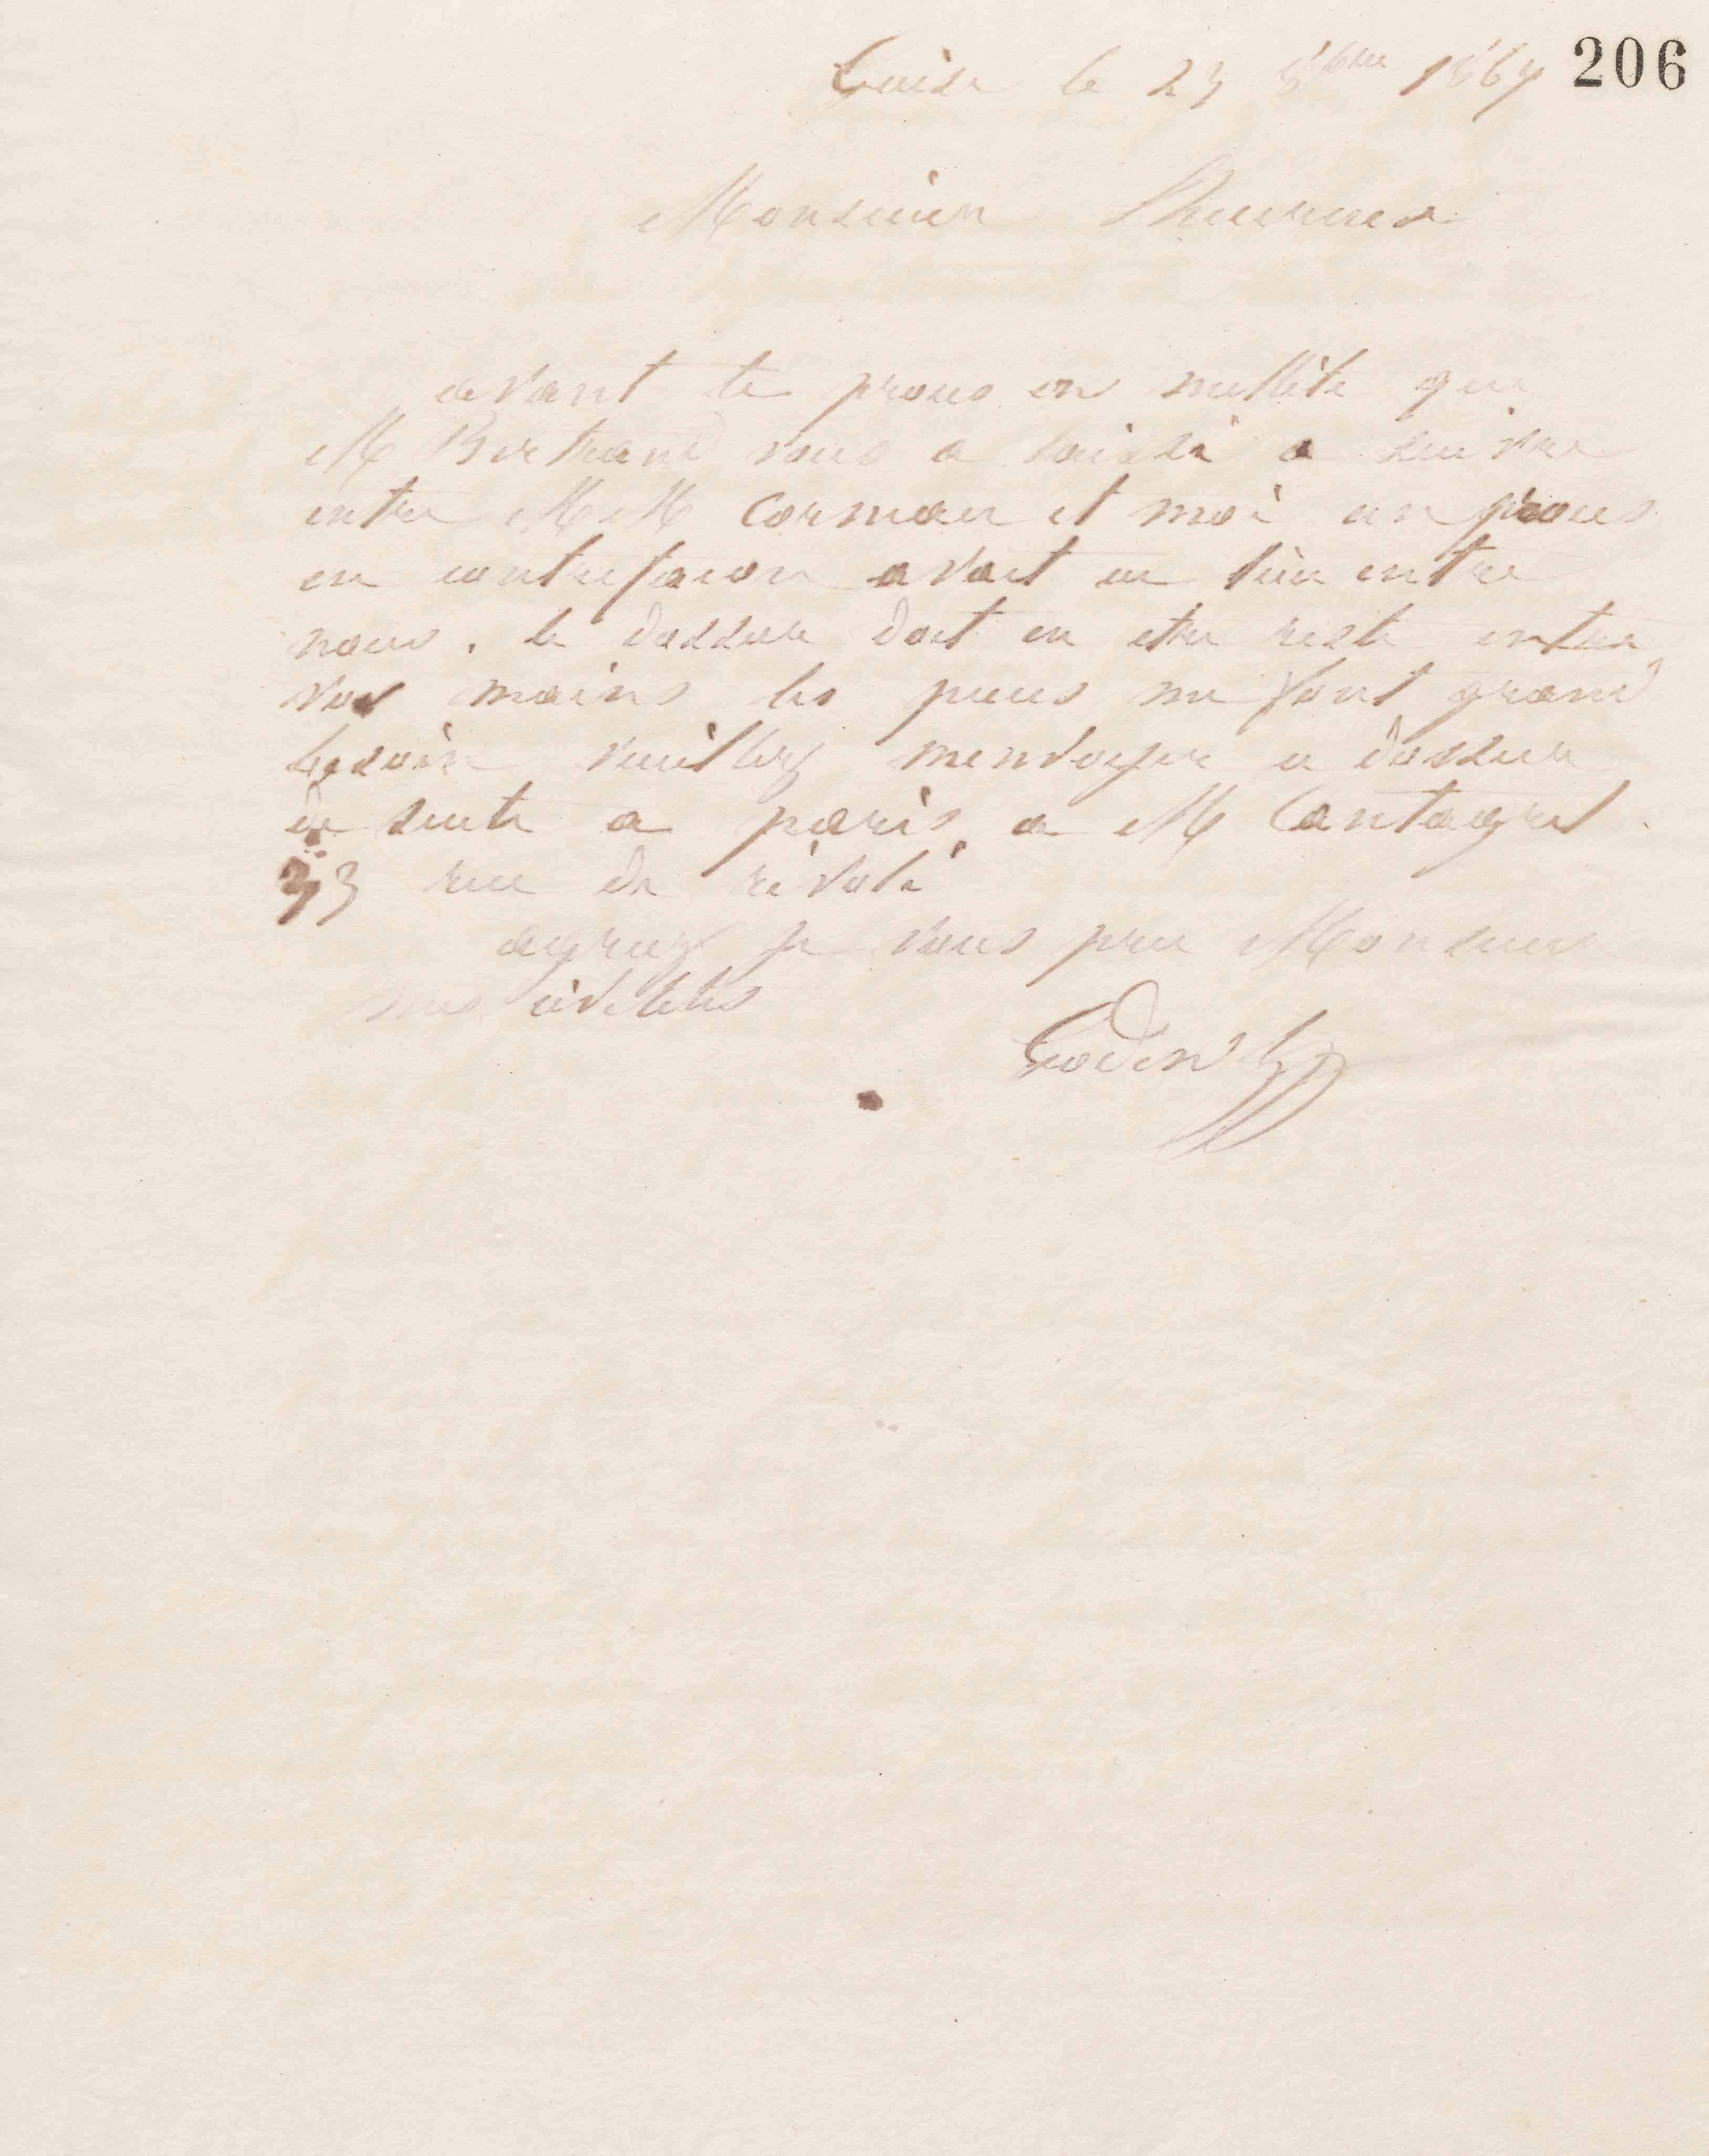 206
Guise le 23 8bre 1867
Monsieur
avant le proces en nullité que
M Bertrand vous a laissé a suivre
entre MM Corneau et moi un proces
en contrefacon avait eu lieu entre
nous. le dossier doit en etre resté entre
vos mains les pieces me font grand
besoin veuillez menvoyer ce dossier
de suite a paris a M Cantagrel
33 rue de rivoli
agreez je vous prie Monsieur
mes civilités
Godin